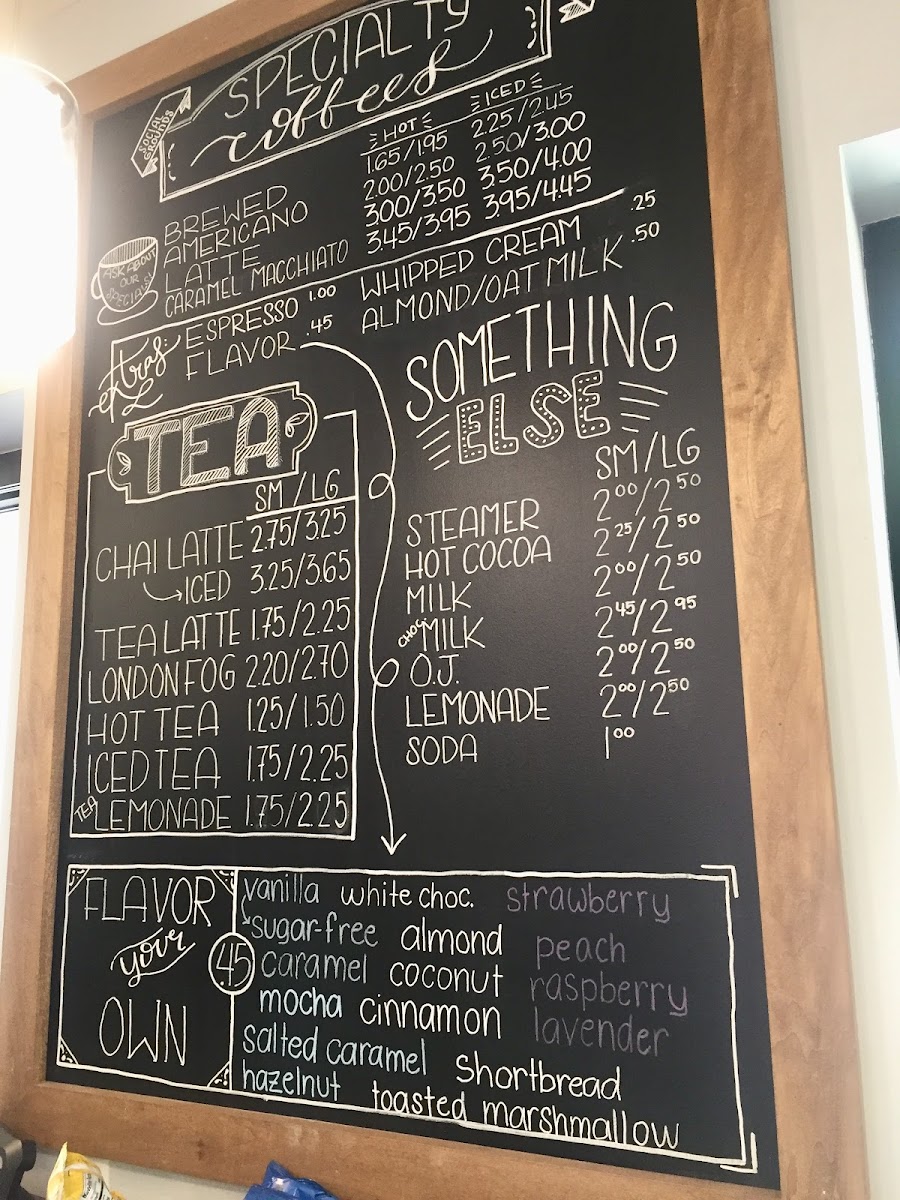 SPECIALTY
coffees
SOCIAL
GROUNDS
HOT ICED
BREWED 1.65/1.95 2.25/2.45
AMERICANO 2.00/2.50 2.50/3.00
LATTE 3.00/3.50 3.50/4.00
CARAMEL MACCHIATO 3.45/3.95 3.95/4.45
ASK ABOUT
OUR
SPECIALS!
extras:
ESPRESSO 1.00
FLAVOR .45
WHIPPED CREAM .25
ALMOND/OAT MILK .50
TEA
SM / LG
CHAI LATTE 2.75/3.25
ICED 3.25/3.65
TEA LATTE 1.75/2.25
LONDON FOG 2.20/2.70
HOT TEA 1.25/1.50
ICED TEA 1.75/2.25
TEA LEMONADE 1.75/2.25
SOMETHING
ELSE
SM/LG
STEAMER 2.00/2.50
HOT COCOA 2.25/2.50
MILK 2.00/2.50
CHOC MILK 2.45/2.95
O.J. 2.00/2.50
LEMONADE 2.00/2.50
SODA 1.00
FLAVOR
your
OWN
.45
vanilla white choc. strawberry
sugar-free almond peach
caramel coconut raspberry
mocha cinnamon lavender
salted caramel shortbread
hazelnut toasted marshmallow